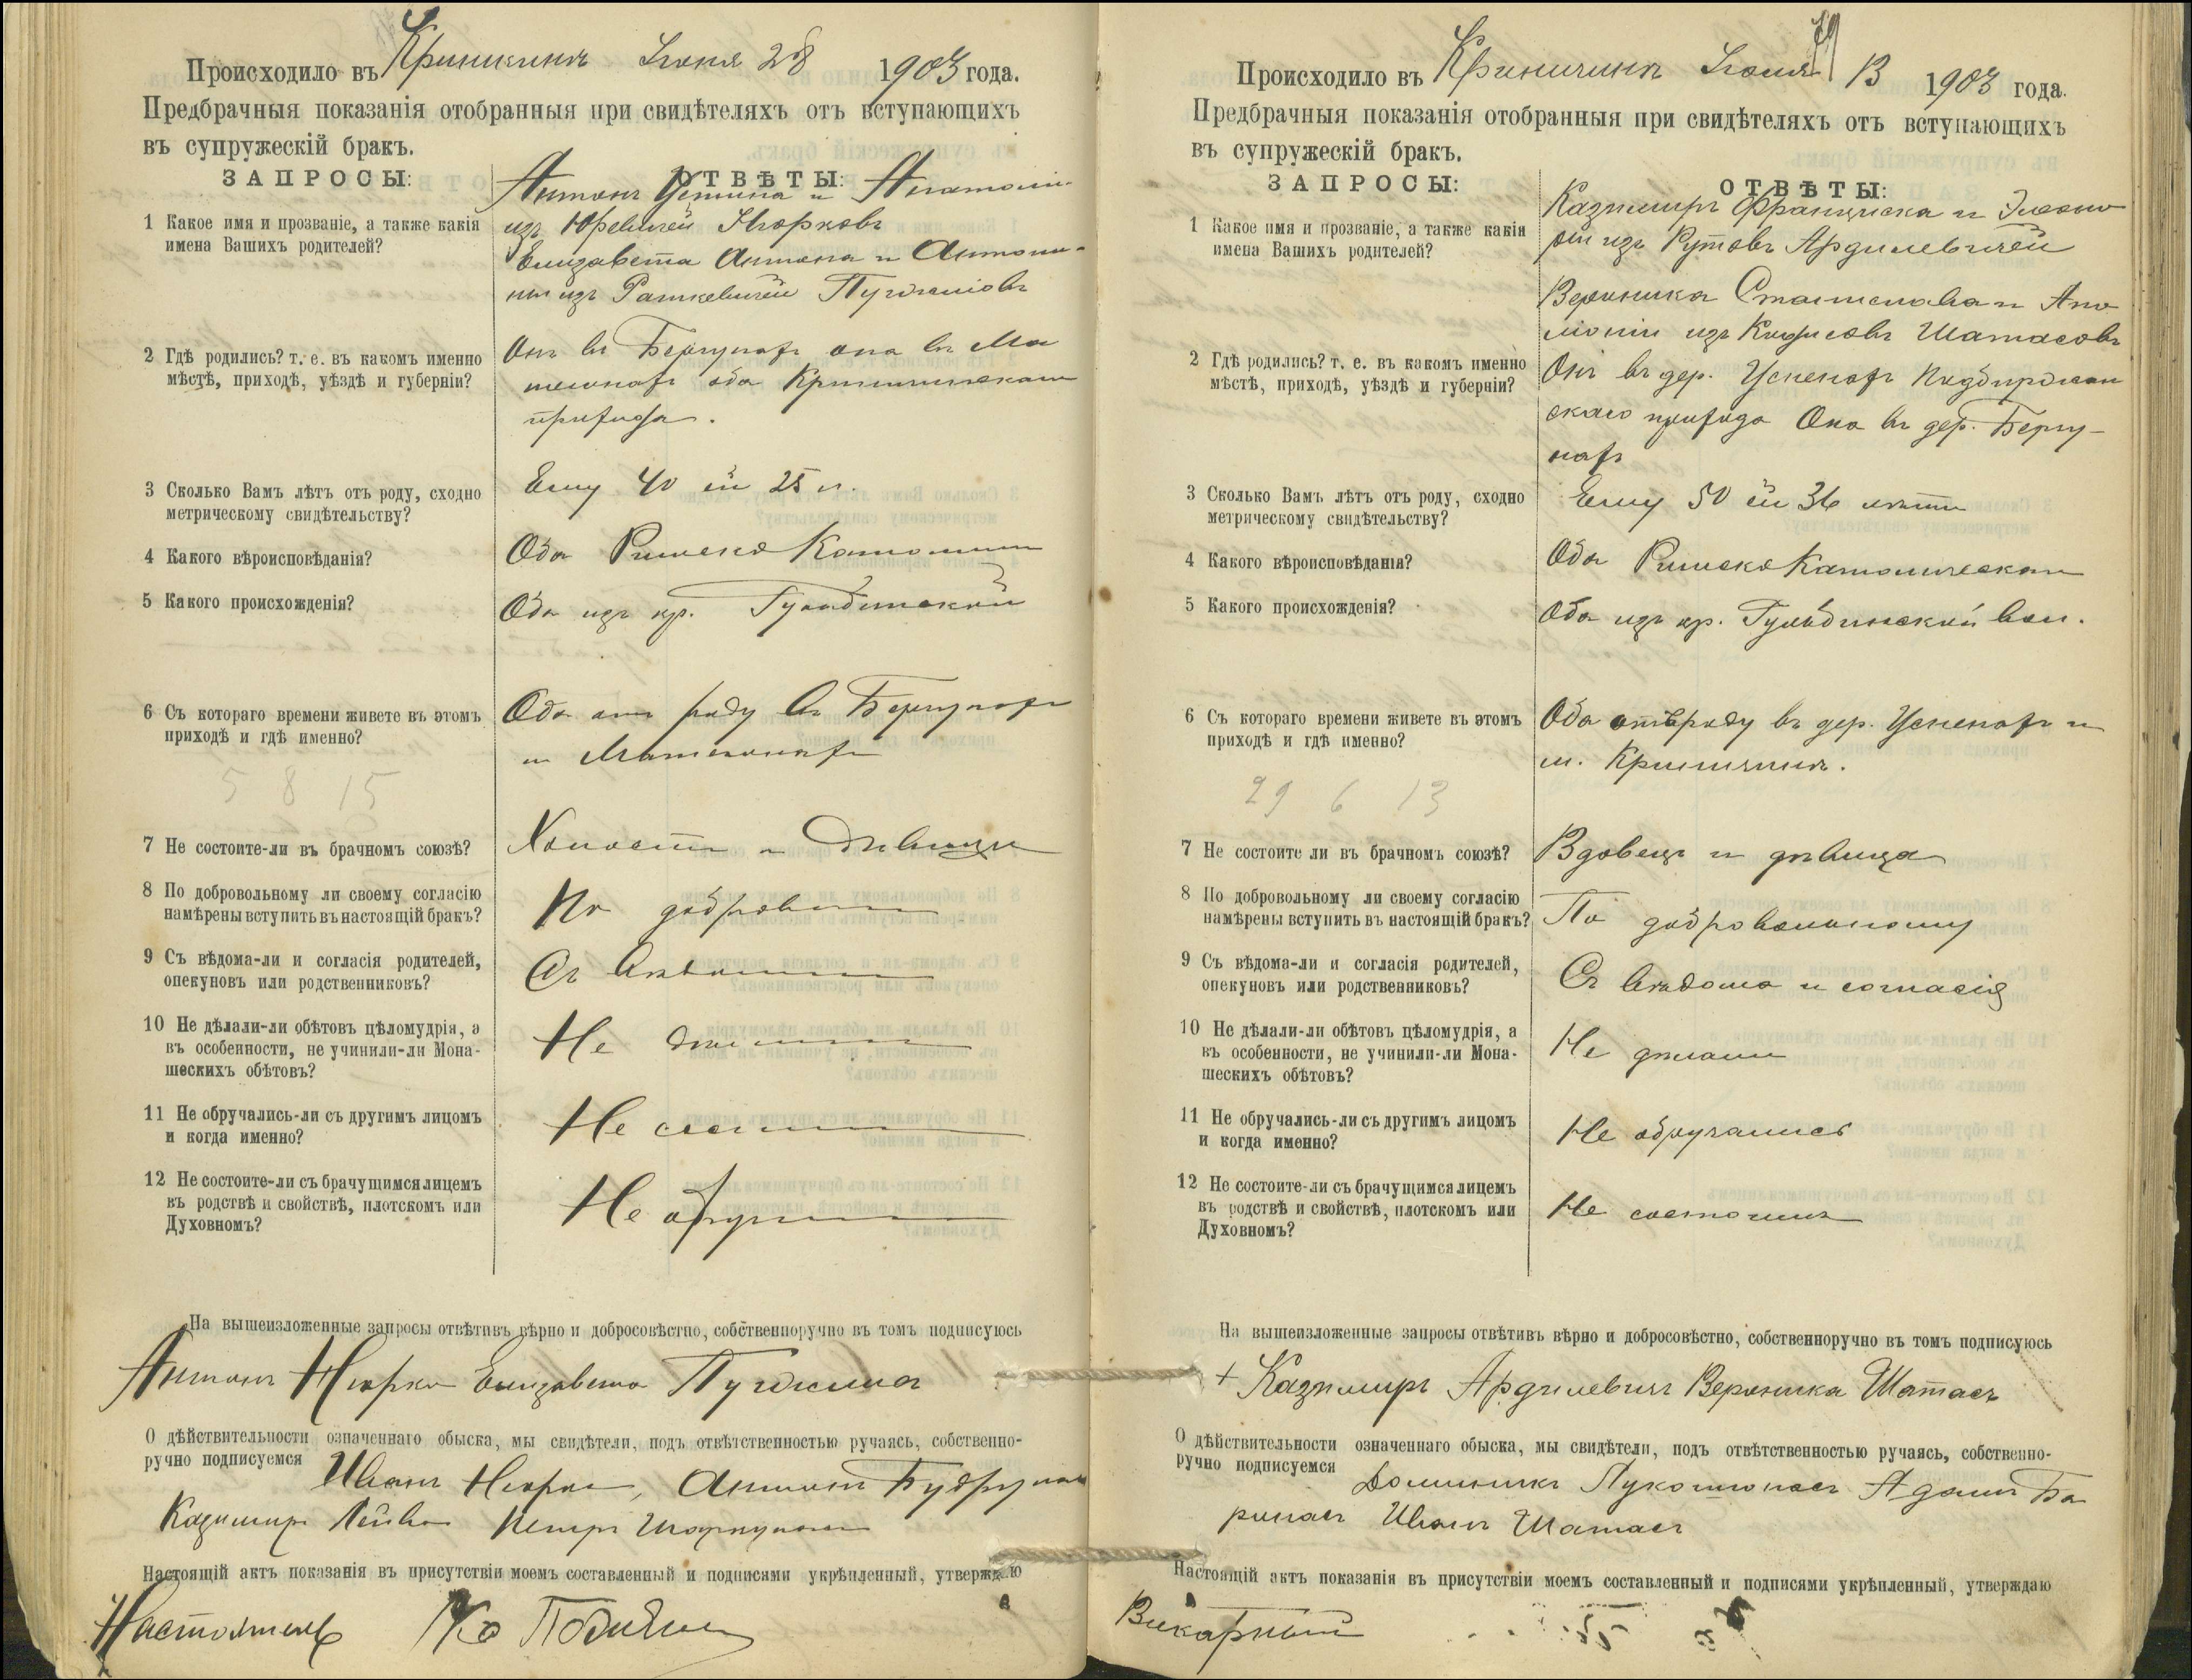 Происходило въ Криничинъ Іюня 28 1903 года.
Предбрачныя показанія отобранныя при свидѣтеляхъ отъ вступающихъ
въ супружескій бракъ.
ЗАПРОСЫ: ОТВѢТЫ:
1 Какое имя и прозваніе, а также какія
имена Вашихъ родителей?
Антонъ Устина и
изъ Юревичей Нюрковъ
Елизавета Антона и Антони-
ны изъ
2 Гдѣ родились? т. е. въ какомъ именно
мѣстѣ, приходѣ, уѣздѣ и губерніи?
Онъ въ она въ
оба
прихода.
3 Сколько Вамъ лѣтъ отъ роду, сходно
метрическому свидѣтельству?
Ему 40 ей 25 л.
4 Какого вѣроисповѣданія?
Оба Римско
5 Какого происхожденія?
Оба изъ кр.
6 Съ котораго времени живете въ этомъ
приходѣ и гдѣ именно?
Оба отъ роду въ
и
5 8 15
7 Не состоите-ли въ брачномъ союзѣ?
и дѣвица
8 По добровольному ли своему согласію
намѣрены вступить въ настоящій бракъ?
По
9 Съ вѣдома-ли и согласія родителей,
опекуновъ или родственниковъ?
Съ
10 Не дѣлали-ли обѣтовъ цѣломудрія, а
въ особенности, не учинили-ли Мона-
шескихъ обѣтовъ?
Не
11 Не обручались-ли съ другимъ лицомъ
и когда именно?
Не
12 Не состоите-ли съ брачущимся лицемъ
въ родствѣ и свойствѣ, плотскомъ или
Духовномъ?
Не
На вышеизложенные запросы отвѣтивъ вѣрно и добросовѣстно, собственноручно въ томъ подписуюсь
Антонъ Нюрка Елизавета
О дѣйствительности означеннаго обыска, мы свидѣтели, подъ отвѣтственностью ручаясь, собственно-
ручно подписуемся
Иванъ Антонъ
Казимиръ Петръ
Настоящій актъ показанія въ присутствіи моемъ составленный и подписами укрѣпленный, утверждаю
Настоятель
Происходило въ Криничинъ 13 1903 года.
Предбрачныя показанія отобранныя при свидѣтеляхъ отъ вступающихъ
въ супружескій бракъ.
ЗАПРОСЫ: ОТВѢТЫ:
1 Какое имя и прозваніе, а также какія
имена Вашихъ родителей?
Казимиръ Франциска и Элеоно
ры изъ Рутовъ Ардилевичей
Вероника Станислава и Апо
лоніи изъ Шатасовъ
2 Гдѣ родились? т. е. въ какомъ именно
мѣстѣ, приходѣ, уѣздѣ и губерніи?
Онъ въ дер.
скаго прихода Она въ дер.
3 Сколько Вамъ лѣтъ отъ роду, сходно
метрическому свидѣтельству?
Ему 50 ей 36 лѣтъ
4 Какого вѣроисповѣданія?
Оба Римско Католическаго
5 Какого происхожденія?
Оба изъ кр. вол.
6 Съ котораго времени живете въ этомъ
приходѣ и гдѣ именно?
Оба отъ роду въ дер. и
м. Криничинъ.
29 6 13
7 Не состоите ли въ брачномъ союзѣ?
Вдовецъ и дѣвица
8 По добровольному ли своему согласію
намѣрены вступить въ настоящій бракъ?
По добровольному
9 Съ вѣдома-ли и согласія родителей,
опекуновъ или родственниковъ?
Съ вѣдома и согласія
10 Не дѣлали-ли обѣтовъ цѣломудрія, а
въ особенности, не учинили-ли Мона-
шескихъ обѣтовъ?
Не дѣлали
11 Не обручались-ли съ другимъ лицомъ
и когда именно?
Не обручались
12 Не состоите-ли съ брачущимся лицемъ
въ родствѣ и свойствѣ, плотскомъ или
Духовномъ?
Не состоимъ
На вышеизложенные запросы отвѣтивъ вѣрно и добросовѣстно, собственноручно въ томъ подписуюсь
+ Казимиръ Ардилевичъ Вероника Шатасъ
О дѣйствительности означеннаго обыска, мы свидѣтели, подъ отвѣтственностью ручаясь, собственно-
ручно подписуемся
Доминикъ Адамъ Ба
Иванъ Шатасъ
Настоящій актъ показанія въ присутствіи моемъ составленный и подписями укрѣпленный, утверждаю
Викарный